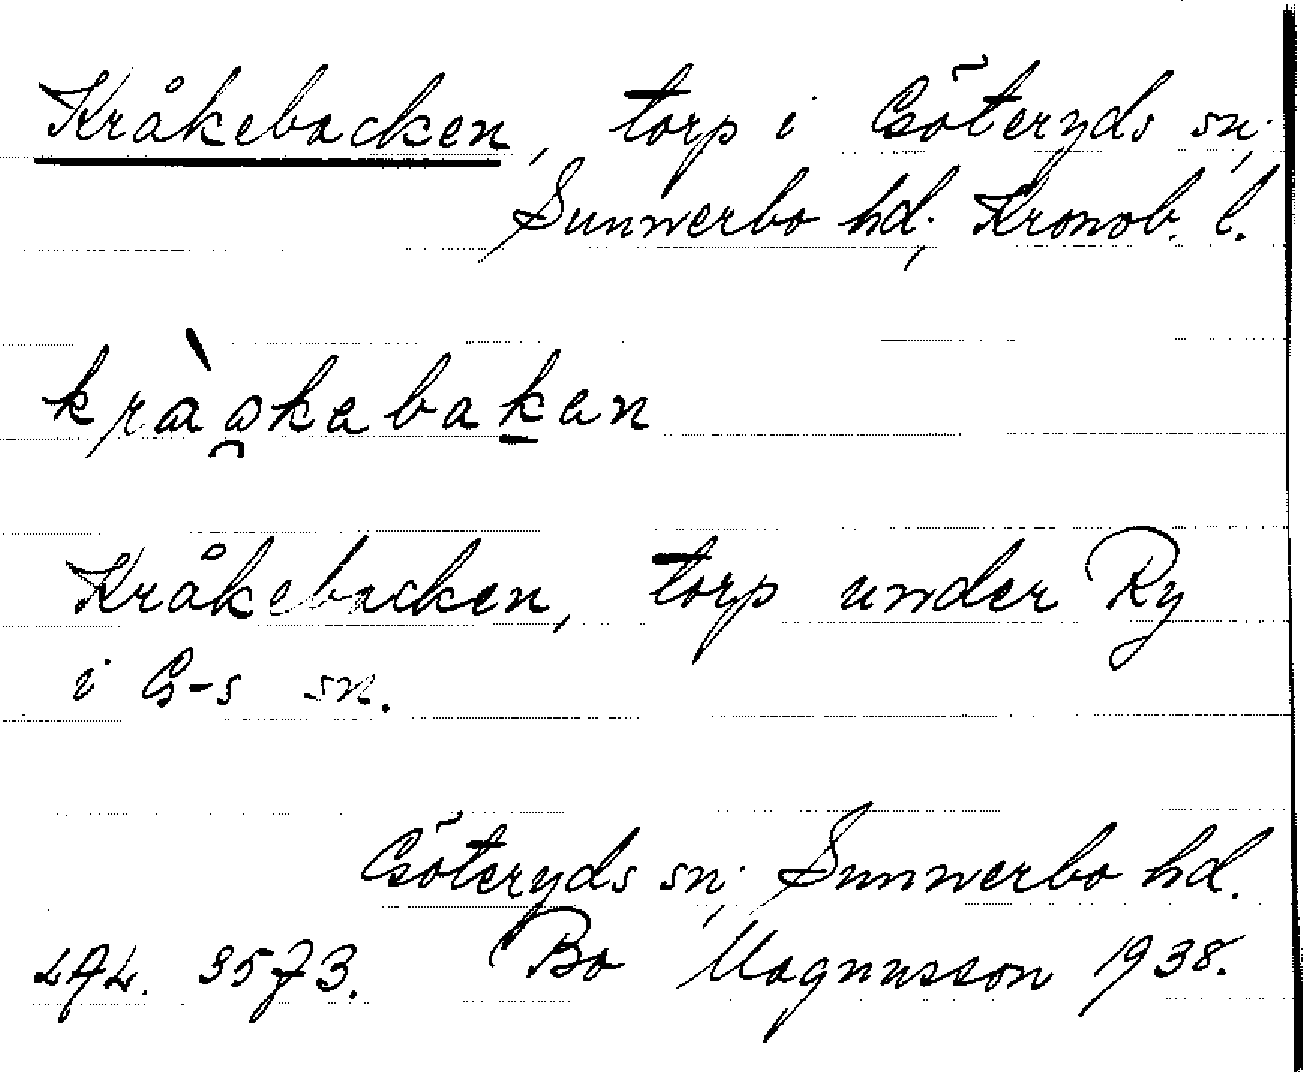 Kråkebacken, torp i Göteryds sn.,
Sunnerbo hd., Kronob. l.
kràa̯kebak̠en
Kråkebacken, torp under Ry
i G-s sn.
Göteryds sn., Sunnerbo hd.
LAL. 3573. Bo Magnusson 1938.